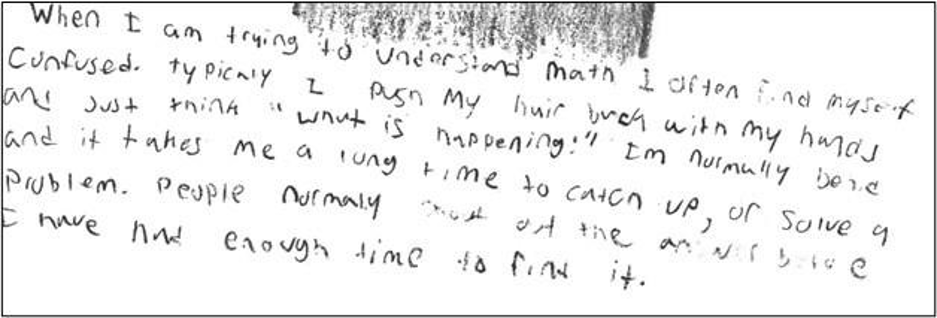 When I am trying to understand math I often find myself
Confused. typicaly I push my hair back with my hands
and just think "what is happening!" Im normally
and it takes me a long time to catch up, or solve a
problem. People normaly shout out the answer before
I have had enough time to find it.